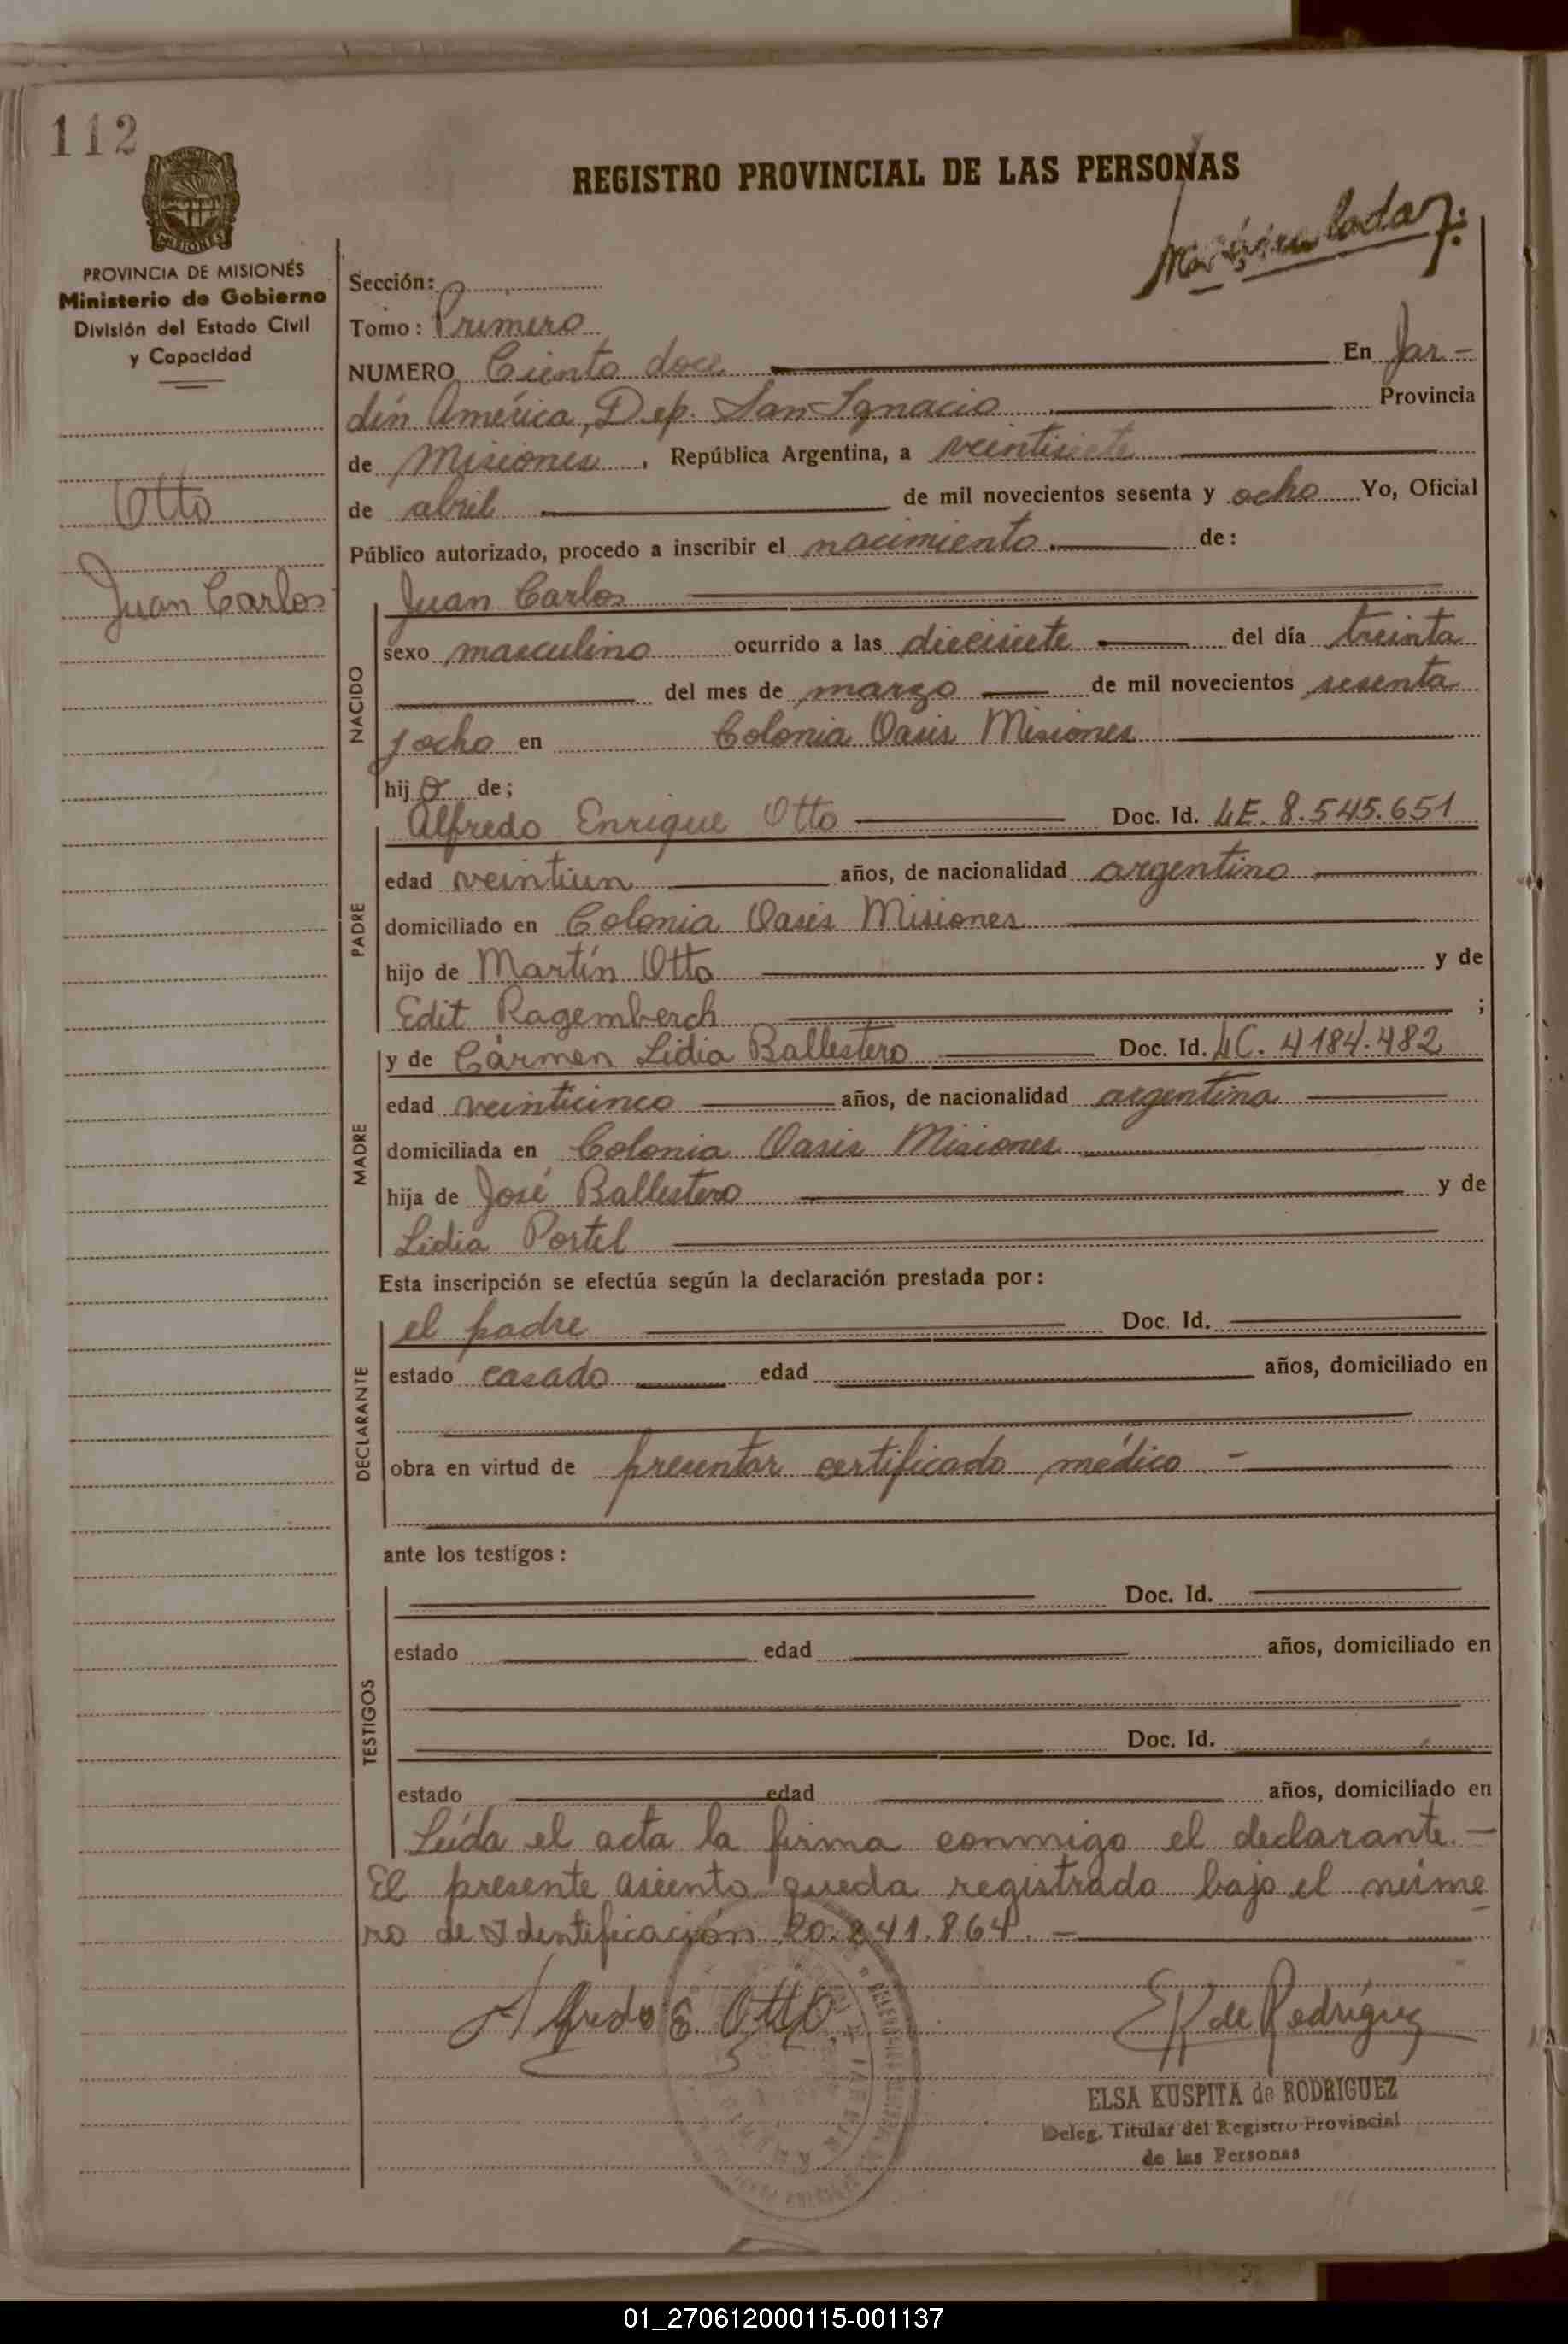 112
REGISTRO PROVINCIAL DE LAS PERSONAS
PROVINCIA DE MISIONES
Ministerio de Gobierno
División del Estado Civil
y Capacidad
Otto
Juan Carlos
Sección:
Tomo: Primero
NUMERO Ciento doce En Jar-
dín América, Dep. San Ignacio Provincia
de Misiones, República Argentina, a veintisiete
de abril de mil novecientos sesenta y ocho Yo, Oficial
Público autorizado, procedo a inscribir el nacimiento de:
NACIDO
Juan Carlos
sexo masculino ocurrido a las diecisiete del día treinta
del mes de marzo de mil novecientos sesenta
y ocho en Colonia Oasis Misiones
hijo de;
PADRE
Alfredo Enrique Otto Doc. Id. LE. 8.545.651
edad veintiun años, de nacionalidad argentino
domiciliado en Colonia Oasis Misiones
hijo de Martín Otto y de
Edit Ragemberch ;
MADRE
y de Cármen Lidia Ballestero Doc. Id. LC. 4184.482
edad veinticinco años, de nacionalidad argentina
domiciliada en Colonia Oasis Misiones
hija de José Ballestero y de
Lidia Portel
Esta inscripción se efectúa según la declaración prestada por:
DECLARANTE
el padre Doc. Id.
estado casado edad años, domiciliado en
obra en virtud de presentar certificado médico -
ante los testigos:
TESTIGOS
Doc. Id.
estado edad años, domiciliado en
Doc. Id.
estado edad años, domiciliado en
Leída el acta la firma conmigo el declarante.-
El presente asiento queda registrado bajo el núme
ro de Identificación 20.241.864.-
Alfredo E. Otto.
EK de Rodríguez
ELSA KUSPITA de RODRIGUEZ
Deleg. Titular del Registro Provincial
de las Personas
01_270612000115-001137